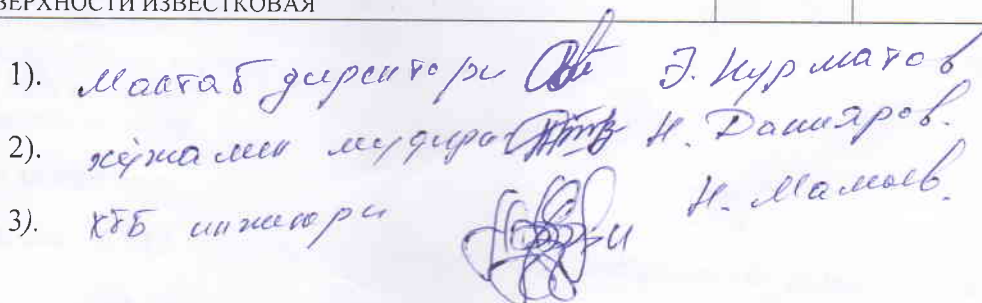 ВЕРХНОСТИ ИЗВЕСТКОВАЯ
1). Мактаб директори Э. Нурматов
2). хўжалик мудири Н. Данияров.
3). ХТБ инженери Н. Мамаев.